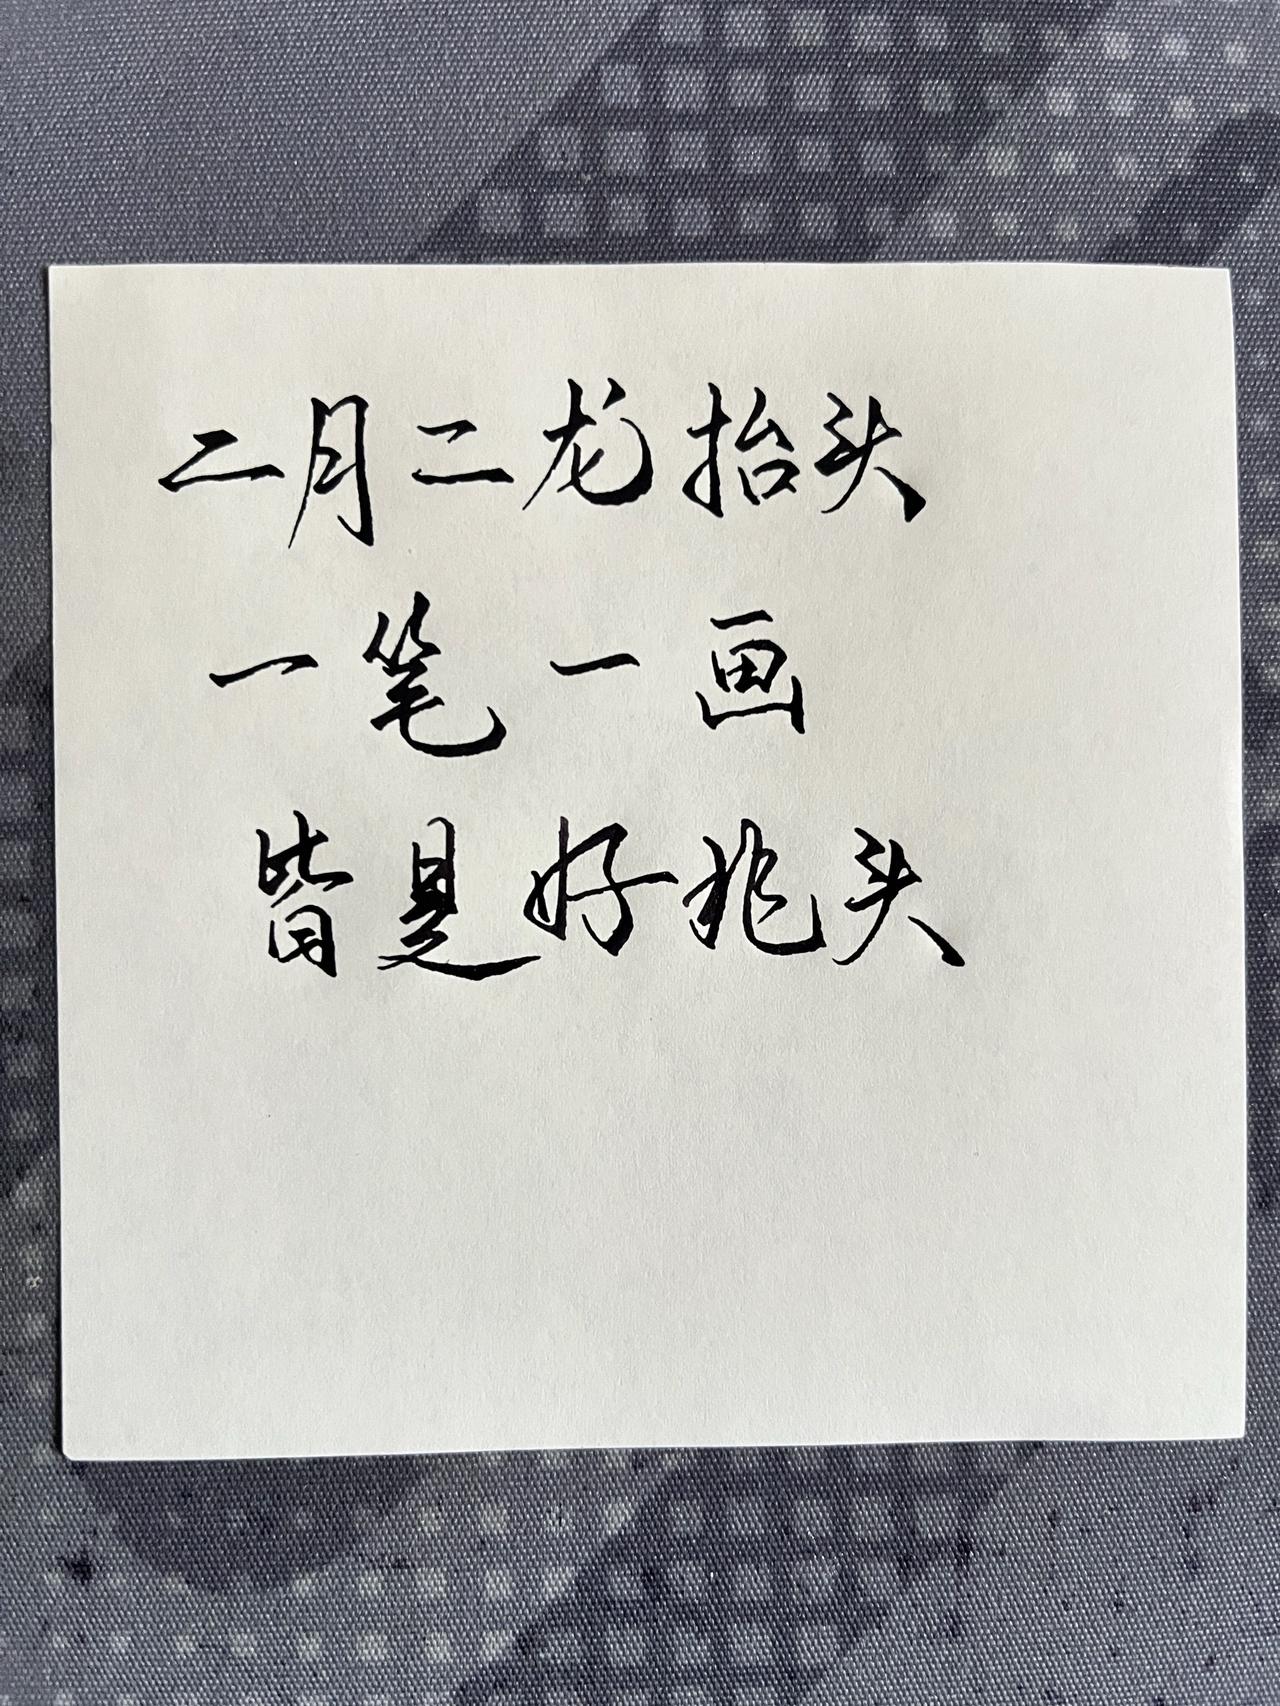 二月二龙抬头
一笔一画
皆是好兆头